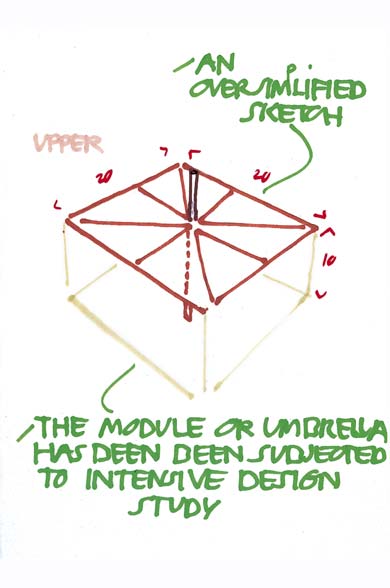 AN
OVERSIMPLIFIED
SKETCH
UPPER
20
20
10
THE MODULE OR UMBRELLA
HAS DEEN BEEN SUBJECTED
TO INTENSIVE DESIGN
STUDY